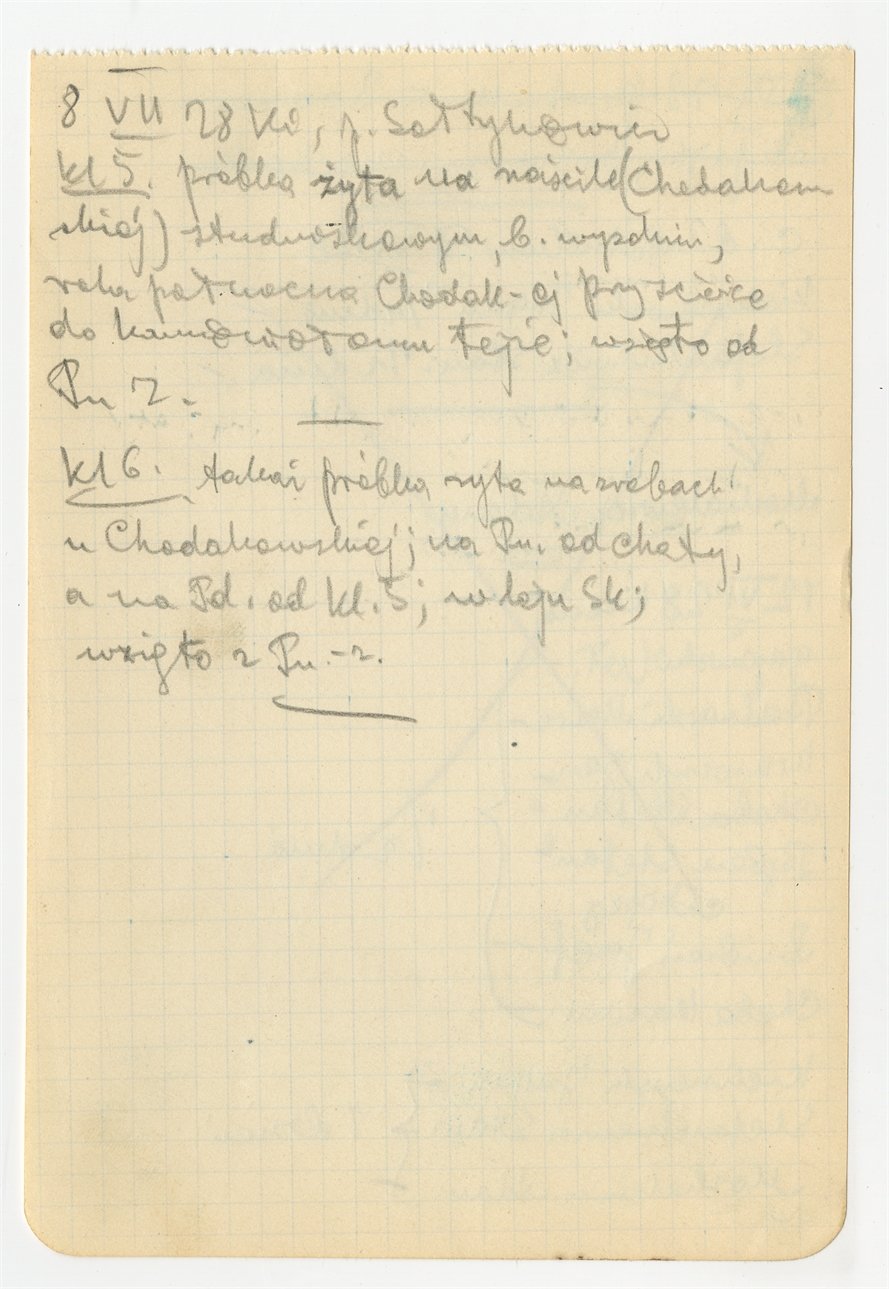 8 VII 28 Ki, p. Sołtykowie
kl 5. próbka żyta na naiscile (Chodakow
skiej) studwoskowym, b. wyzdnin,
rola północna Chodak-ej przy ścieżce
do kamieniołomu tejże; wzięto od
Pn Z.
kl 6. takaż próbka żyta na zrębach
u Chodakowskiej; na Pn. od chaty,
a na Pd. od kl. 5; w leju Sk;
wzięto z Pn.-z.